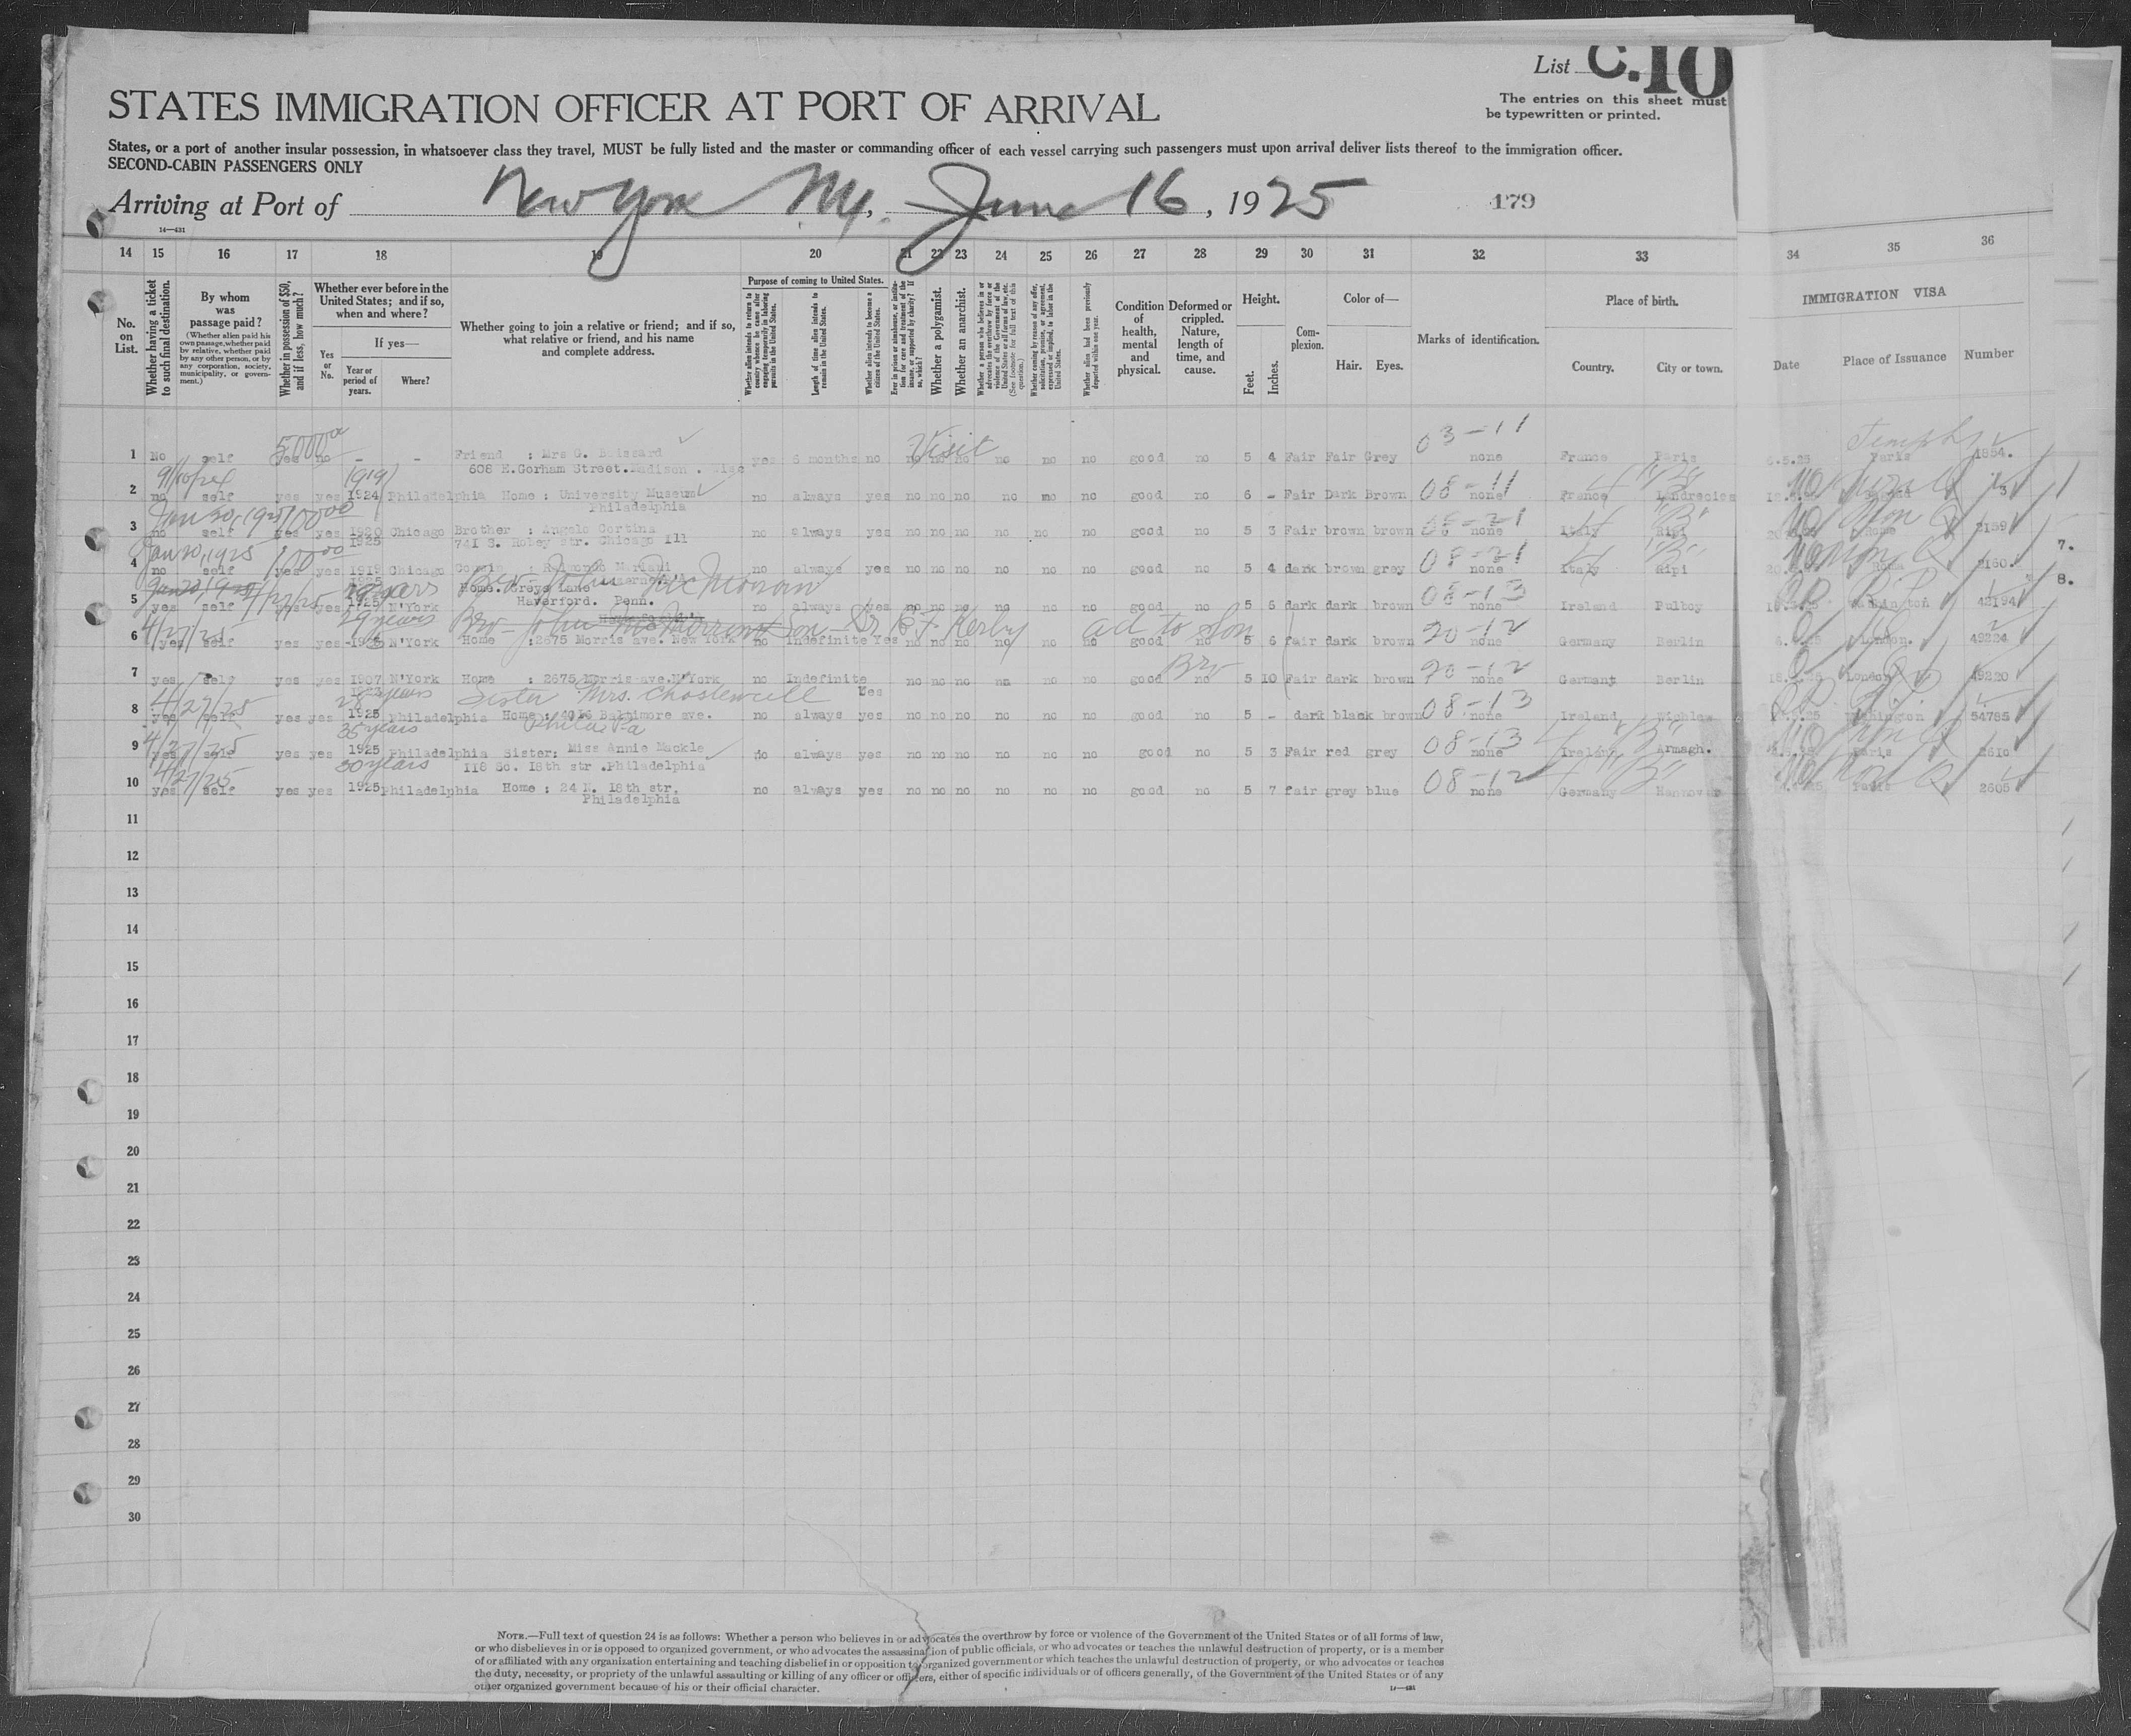 List C.10
STATES IMMIGRATION OFFICER AT PORT OF ARRIVAL
The entries on this sheet must
be typewritten or printed.
States, or a port of another insular possession, in whatsoever class they travel, MUST be fully listed and the master or commanding officer of each vessel carrying such passengers must upon arrival deliver lists thereof to the immigration officer.
SECOND-CABIN PASSENGERS ONLY
Arriving at Port of New York NY, June 16, 1925
179
14—431
14 15 16 17 18 19 20 21 22 23 24 25 26 27 28 29 30 31 32 33 34 35 36
No. on List.
Whether having a ticket to such final destination.
By whom was passage paid?
(Whether alien paid his own passage, whether paid by relative, whether paid by any other person, or by any corporation, society, municipality, or government.)
Whether in possession of $50, and if less, how much?
Whether ever before in the United States; and if so, when and where?
Yes or No.
If yes—
Year or period of years.
Where?
Whether going to join a relative or friend; and if so, what relative or friend, and his name and complete address.
Purpose of coming to United States.
Whether alien intends to return to country whence he came after engaging temporarily in laboring pursuits in the United States.
Length of time alien intends to remain in the United States.
Whether alien intends to become a citizen of the United States.
Ever in prison or almshouse, or institution for care and treatment of the insane, or supported by charity? If so, which?
Whether a polygamist.
Whether an anarchist.
Whether a person who believes in or advocates the overthrow by force or violence of the Government of the United States or all forms of law, etc. (See footnote for full text of this question.)
Whether coming by reason of any offer, solicitation, promise, or agreement, expressed or implied, to labor in the United States.
Whether alien had been previously deported within one year.
Condition of health, mental and physical.
Deformed or crippled. Nature, length of time, and cause.
Height.
Feet. Inches.
Complexion.
Color of—
Hair. Eyes.
Marks of identification.
Place of birth.
Country. City or town.
IMMIGRATION VISA
Date Place of Issuance Number
Visit 03-11
1 No self yes no - - Friend : Mrs G. Brissard yes 6 months no no no no no no no good no 5 4 Fair Fair Grey none France Paris 6.5.25 Paris 1854.
608 E.Gorham Street.Madison . Wisc
1919
2 no self yes yes 1924 Philadelphia Home : University Museum no always yes no no no no no no good no 6 - Fair Dark Brown 08-11 none France Landrecies
Philadelphia
Jan 30, 1925 100.00
3 no self yes yes 1920 Chicago Brother : Angelo Cortina no always yes no no no no no no good no 5 3 Fair brown brown none Italy Ripi Rome 2159
1925 741 S. Robey str. Chicago Ill
Jan 30, 1925 100.00
4 no self yes yes 1919 Chicago no always yes no no no no no no good no 5 4 dark brown grey 08-21 none Italy Ripi Roma 2160
5 yes self yes yes 1925 N'York Home. Greys Lane no always yes no no no no no no good no 5 6 dark dark brown 08-13 none Ireland Pulboy 42194
Haverford. Penn.
4/27/25 29 years ad to Son
6 yes self yes yes N'York Home :2675 Morris ave. New York no Indefinite Yes no no no no no no good no 5 6 fair dark brown 20-12 none Germany Berlin London. 49224
Bro
7 yes self yes yes 1907 N'York Home : 2675 Morris ave.N'York no Indefinite Yes no no no no no no good no 5 10 Fair dark brown 20-12 none Germany Berlin London 49220
4/27/25 28 years Sister Mrs.
8 yes self yes yes 1925 Philadelphia Home: 4016 Baltimore ave. no always yes no no no no no no good no 5 - dark black brown 08-13 none Ireland 54785
Phila Pa
4/27/25 35 years
9 yes self yes yes 1925 Philadelphia Sister: Miss Annie Mackle no always yes no no no no no no good no 5 3 Fair red grey 08-13 none Ireland Armagh. Paris 2610
118 So. 18th str .Philadelphia
4/27/25 30 years
10 yes self yes yes 1925 Philadelphia Home : 24 N. 18th str. no always yes no no no no no no good no 5 7 fair grey blue 08-12 none Germany Hannover Paris 2605
Philadelphia
7.
8.
11
12
13
14
15
16
17
18
19
20
21
22
23
24
25
26
27
28
29
30
NOTE.—Full text of question 24 is as follows: Whether a person who believes in or advocates the overthrow by force or violence of the Government of the United States or of all forms of law,
or who disbelieves in or is opposed to organized government, or who advocates the assassination of public officials, or who advocates or teaches the unlawful destruction of property, or is a member
of or affiliated with any organization entertaining and teaching disbelief in or opposition to organized government or which teaches the unlawful destruction of property, or who advocates or teaches
the duty, necessity, or propriety of the unlawful assaulting or killing of any officer or officers, either of specific individuals or of officers generally, of the Government of the United States or of any
other organized government because of his or their official character.
14—431